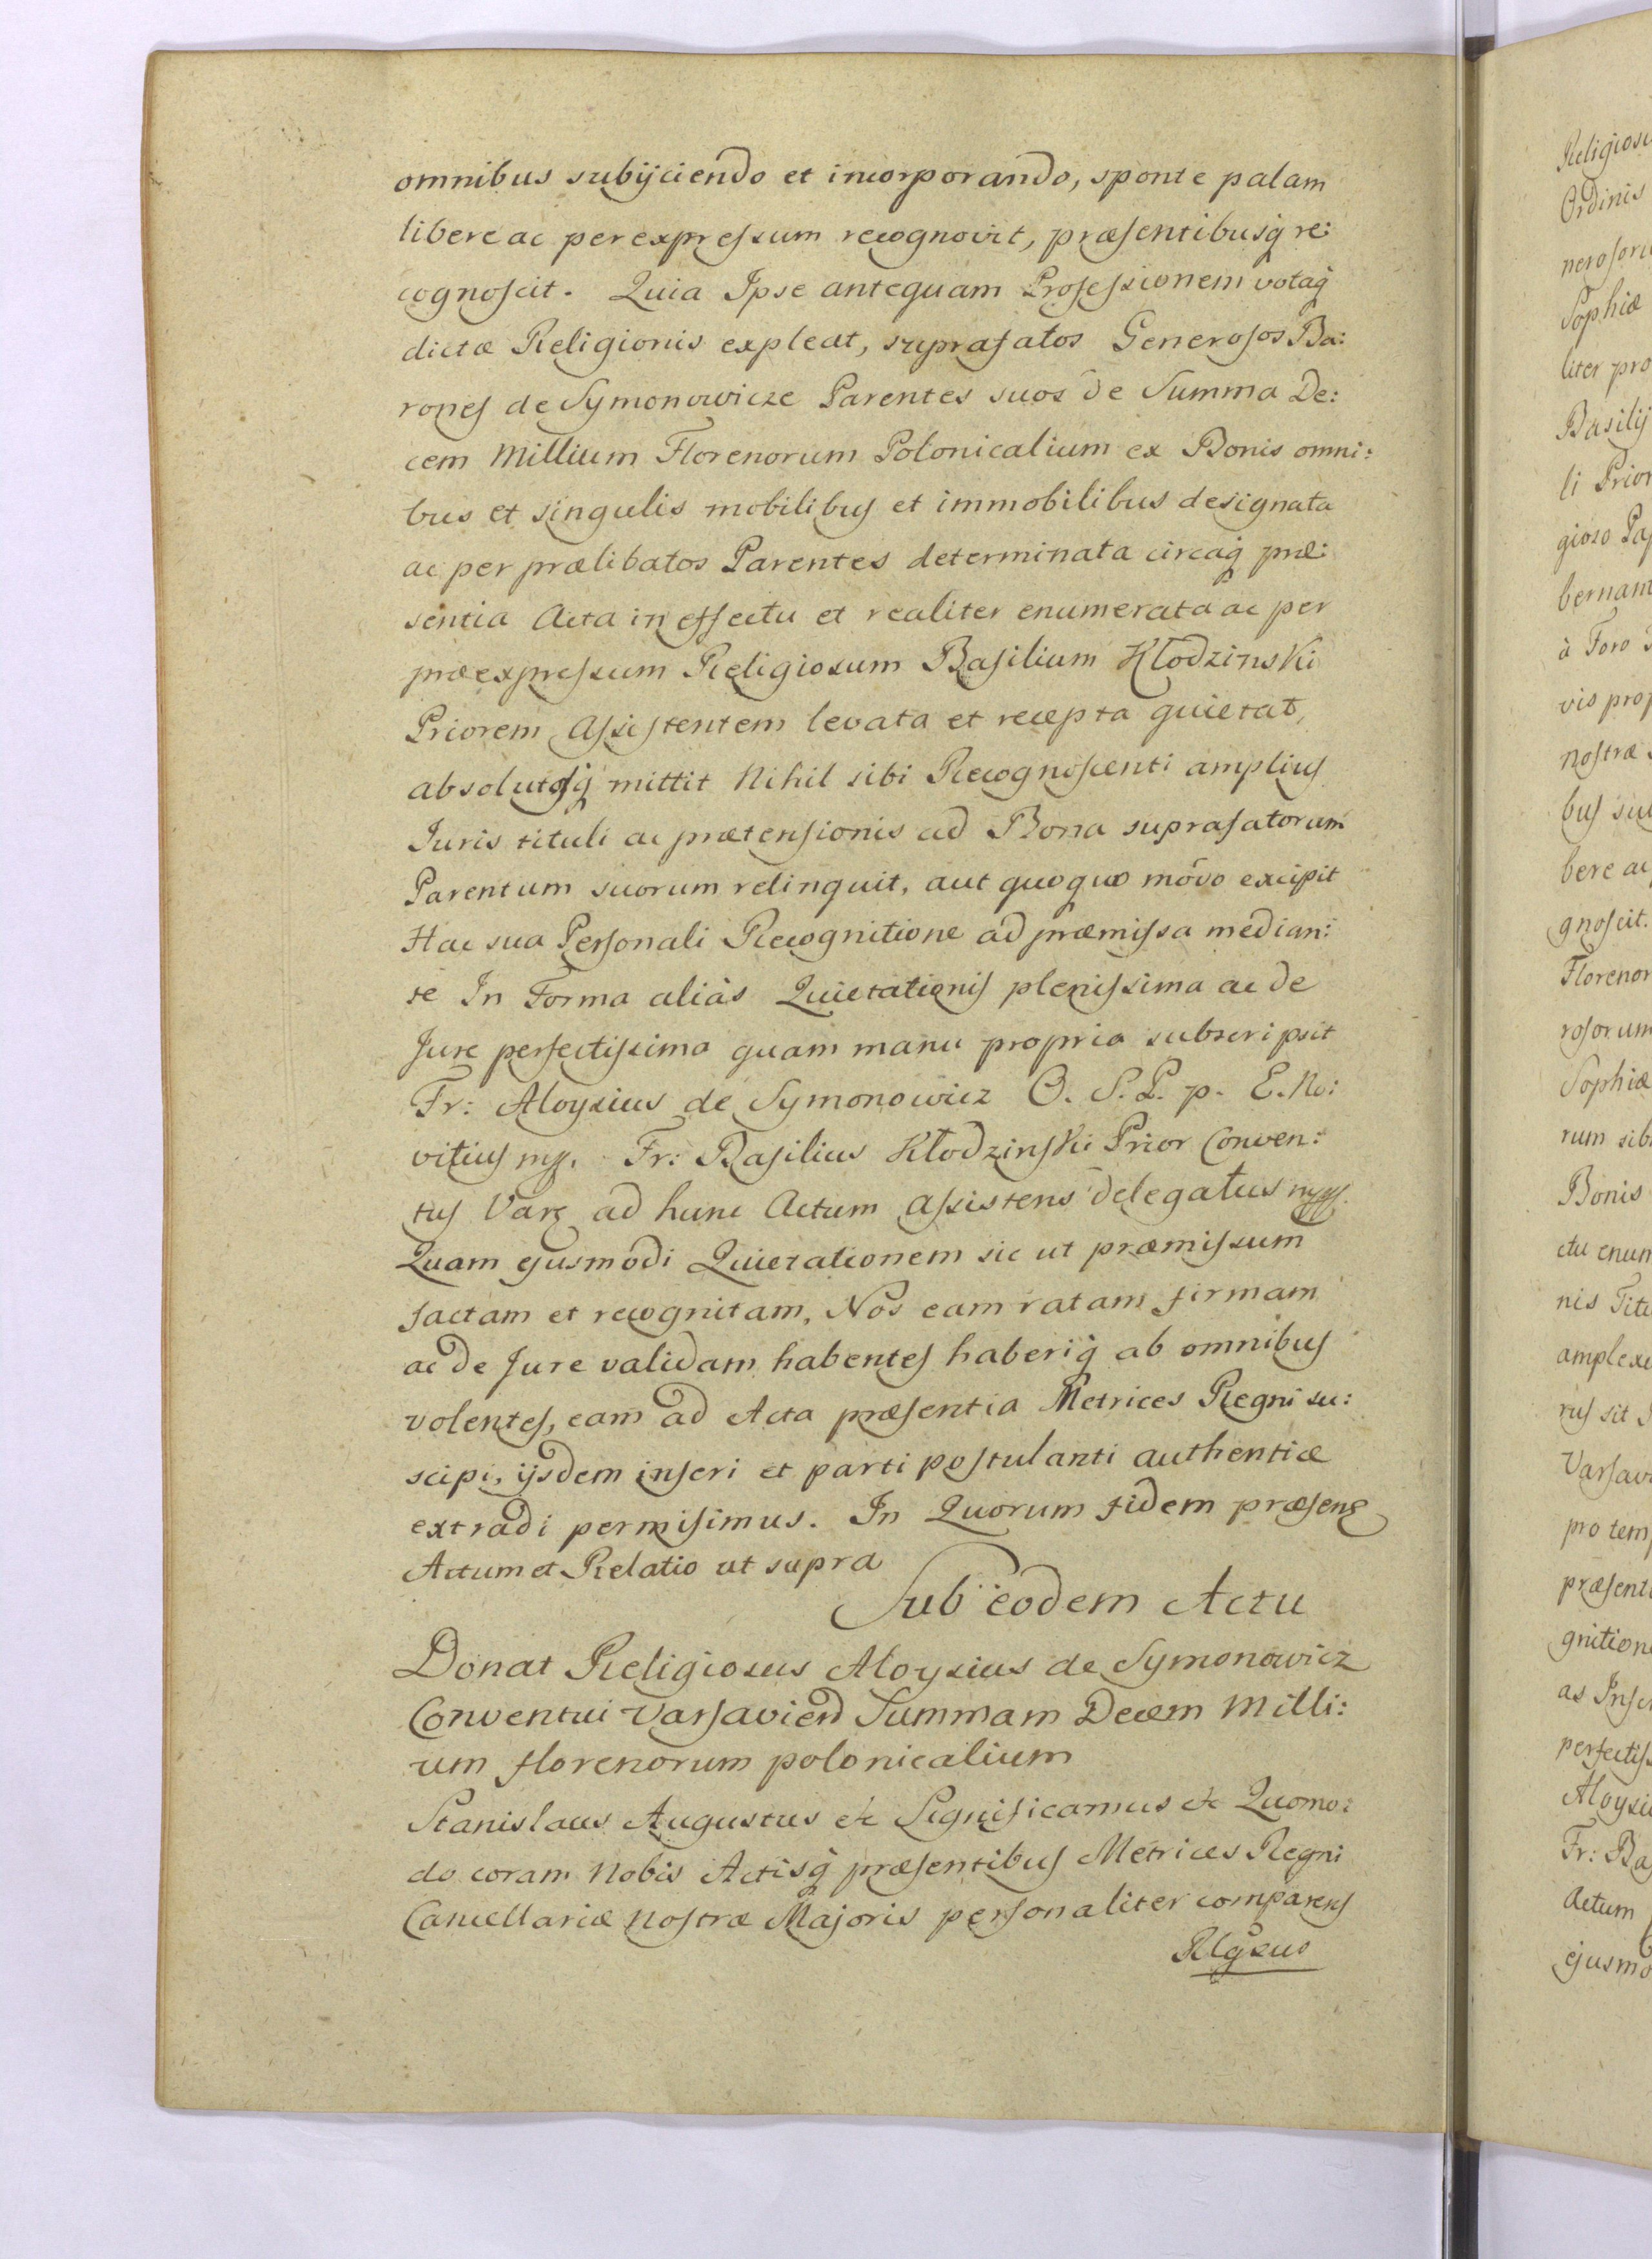 omnibus subijciendo et incorporando, sponte palam
libere ac per expressum recognovit, præsentibusq̃ re:
cognoscit. Quia Ipse antequam Professionem votaq̃
dictæ Religionis expleat, suprafatos Generosos Ba:
rones de Symonowicze Parentes suos de Summa De:
cem Millium Florenorum Polonicalium ex Bonis omni:
bus et singulis mobilibus et immobilibus designata
ac per prælibatos Parentes determinata circaq̃ præ:
sentia Acta in effectu et realiter enumerata ac per
præexpressum Religiosum Basilium Kłodzinski
Priorem Assistentem levata et recepta quietat,
absolutosq̃ mittit Nihil sibi Recognoscenti amplius
Juris tituli ac prætensionis ad Bona suprafatorum
Parentum suorum relinquit, aut quoquo modo excipit
Hac sua Personali Recognitione ad præmissa median:
te In Forma aliàs Quietationis plenissima ac de
Jure perfectissima quam manu propria subscripsit
Fr: Aloysius de Symonowicz O. S. P. p. E. No:
vitius mp. Fr: Basilius Kłodzinski Prior Conven:
tus Vars ad hunc Actum Assistens delegatus mpp.
Quam ejusmodi Quietationem sic ut præmissum
factam et recognitam, Nos eam ratam firmam
ac de Jure validam habentes haberiq̃ ab omnibus
volentes, eam ad Acta præsentia Metrices Regni su:
scipi, ijsdem inseri et parti postulanti authenticæ
extradi permisimus. In Quorum fidem præsens
Actum et Relatio ut supra
Sub eodem Actu
Donat Religiosus Aloysius de Symonowicz
Conventui Varsavien Summam Decem Milli:
um florenorum polonicalium
Stanislaus Augustus etc Significamus etc Quomo:
do coram Nobis Actisq̃ præsentibus Metrices Regni
Cancellariæ nostræ Majoris personaliter comparens
Rlgsus
Religios
Ordinis
neroforu
Sophiæ
liter pro
Basilij
li Prior
gioso
bernam
à Foro
vis prop
nostræ
bus su
bere ac
gnoscit.
Florenor
rosorum
Sophiæ
rum sib
Bonis
ctu enum
nis Titu
amplexu
rus sit
Varsav
pro tem
præsent
gnition
as Inser
perfectiss
Aloysi
Fr: Ba
Actum
ejusmo